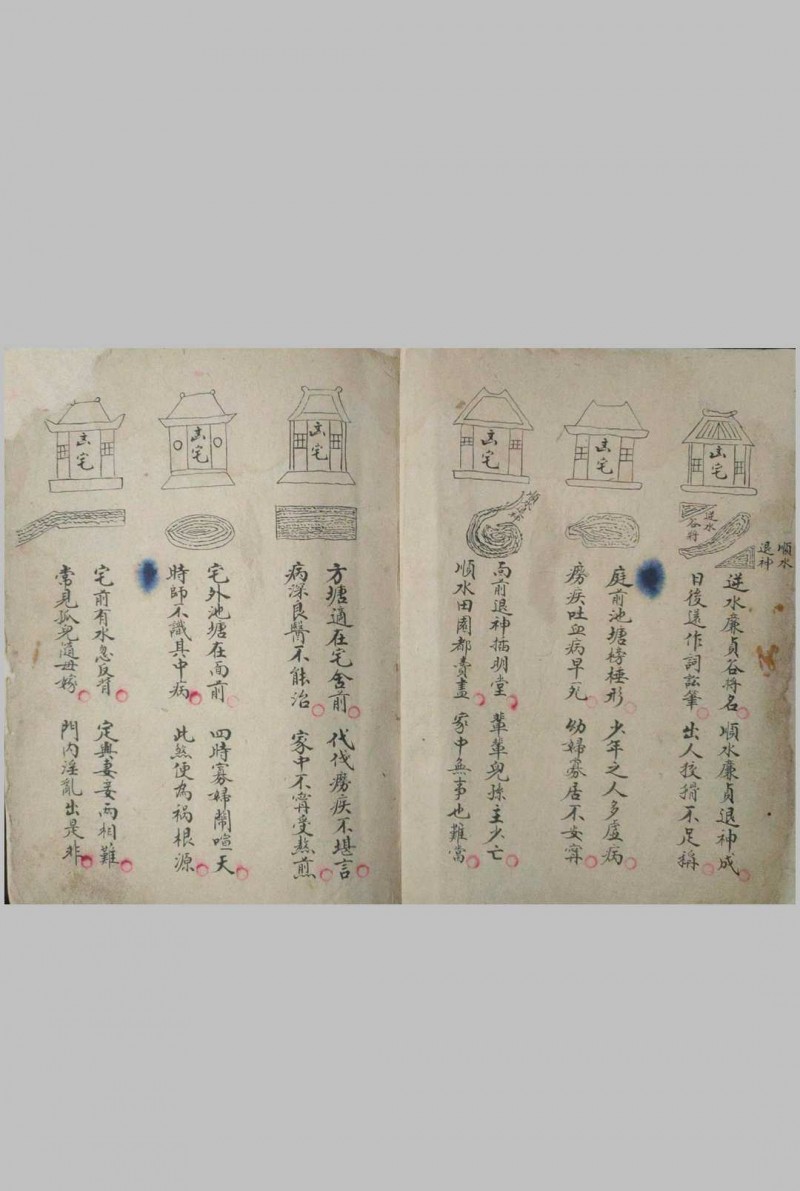 凶宅
逆水
谷将
順水
退神
逆水廉貞谷将名 順水廉貞退神成
日後送作詞訟筆 出人狡猾不足稱
凶宅
庭前池塘榜棰形 少年之人多虛病
癆疾吐血病早死 幼婦寡居不安寧
凶宅
面前退神插明堂 輩輩兒孫主少亡
順水田園都費盡 家中無事也難當
凶宅
方塘適在宅舍前 代伐癆疾不堪言
病深良醫不能治 家中不寗受熬煎
凶宅
宅外池塘在面前 四時寡婦鬧喧天
時師不識其中病 此煞便為禍根源
凶宅
宅前有水急反背 定與妻妾两相難
常見孤兒隨母嫁 門內淫亂出是非